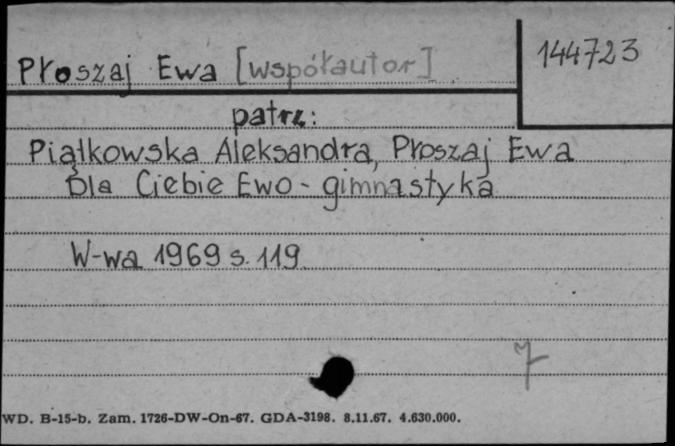 144723
Płoszaj Ewa [współautor]
patrz:
Piątkowska Aleksandra, Płoszaj Ewa
Dla Ciebie Ewo - gimnastyka
W-wa 1969 s. 119.
7
WD. B-15-b. Zam. 1726-DW-On-67. GDA-3198. 8.11.67. 4.630.000.